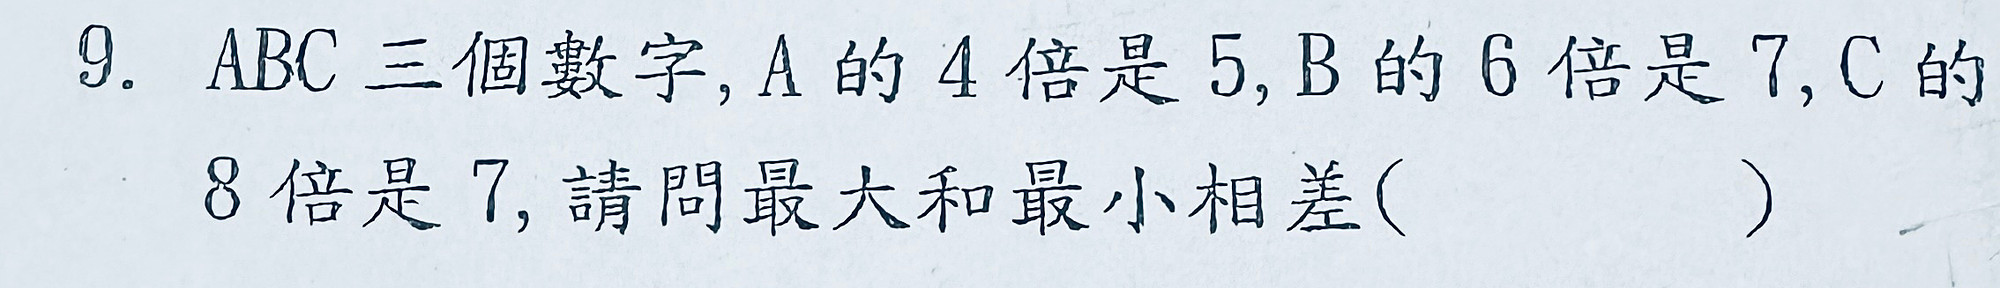 9. ABC 三個數字,A 的 4 倍是 5,B 的 6 倍是 7,C 的
8 倍是 7,請問最大和最小相差(          )